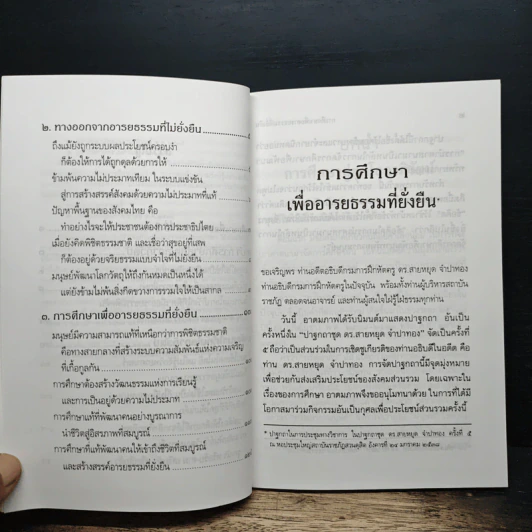 ๒. ทางออกจากอารยธรรมที่ไม่ยั่งยืน
ถึงแม้ยังถูกระบบผลประโยชน์ครอบงำ
ก็ต้องให้การได้ถูกดุลด้วยการให้
ข้ามพ้นความไม่ประมาทเทียม ในระบบแข่งขัน
สู่การสร้างสรรค์สังคมด้วยความไม่ประมาทที่แท้
ปัญหาพื้นฐานของสังคมไทย คือ
ทำอย่างไรจะให้ประชาชนต้องการประชาธิปไตย
เมื่อยังคิดพิชิตธรรมชาติ และเชื่อว่าสุขอยู่ที่เสพ
ก็ต้องอยู่ด้วยจริยธรรมแบบจำใจที่ไม่ยั่งยืน
มนุษย์พัฒนาโลกวัตถุให้ถึงกันหมดเป็นหนึ่งได้
แต่ยังข้ามไม่พ้นสิ่งกีดขวางการรวมใจให้เป็นสากล
๓. การศึกษาเพื่ออารยธรรมที่ยั่งยืน
มนุษย์มีความสามารถแท้ที่เหนือกว่าการพิชิตธรรมชาติ
คือทางสายกลางที่สร้างระบบความสัมพันธ์แห่งความเจริญ
ที่เกื้อกูลกัน
การศึกษาต้องสร้างวัฒนธรรมแห่งการเรียนรู้
และการเป็นอยู่ด้วยความไม่ประมาท
การศึกษาแท้ที่พัฒนาคนอย่างบูรณาการ
นำชีวิตสู่อิสรภาพที่สมบูรณ์
การศึกษาที่แท้พัฒนาคนให้เข้าถึงชีวิตที่สมบูรณ์
และสร้างสรรค์อารยธรรมที่ยั่งยืน
การศึกษา
เพื่ออารยธรรมที่ยั่งยืน*
ขอเจริญพร ท่านอดีตอธิบดีกรมการฝึกหัดครู ดร.สายหยุด จำปาทอง
ท่านอธิบดีกรมการฝึกหัดครูในปัจจุบัน พร้อมทั้งท่านผู้บริหารสถาบัน
ราชภัฏ ตลอดจนอาจารย์ และท่านผู้สนใจใฝ่รู้ใฝ่ธรรมทุกท่าน
วันนี้ อาตมภาพได้รับนิมนต์มาแสดงปาฐกถา อันเป็น
ครั้งหนึ่งใน "ปาฐกถาชุด ดร.สายหยุด จำปาทอง" จัดเป็นครั้งที่
๕ ถือว่าเป็นส่วนร่วมในการเชิดชูเกียรติของท่านอธิบดีในอดีต คือ
ท่าน ดร.สายหยุด จำปาทอง การจัดปาฐกถานี้มีจุดมุ่งหมาย
เพื่อช่วยกันส่งเสริมประโยชน์ของสังคมส่วนรวม โดยเฉพาะใน
เรื่องของการศึกษา อาตมภาพจึงขออนุโมทนาด้วย ในการที่ได้มี
โอกาสมาร่วมกิจกรรมอันเป็นกุศลเพื่อประโยชน์ส่วนรวมครั้งนี้
* ปาฐกถาในการประชุมทางวิชาการ ในปาฐกถาชุด ดร.สายหยุด จำปาทอง ครั้งที่ ๕
ณ หอประชุมใหญ่สถาบันราชภัฏสวนดุสิต อังคารที่ ๒๔ มกราคม ๒๕๓๘